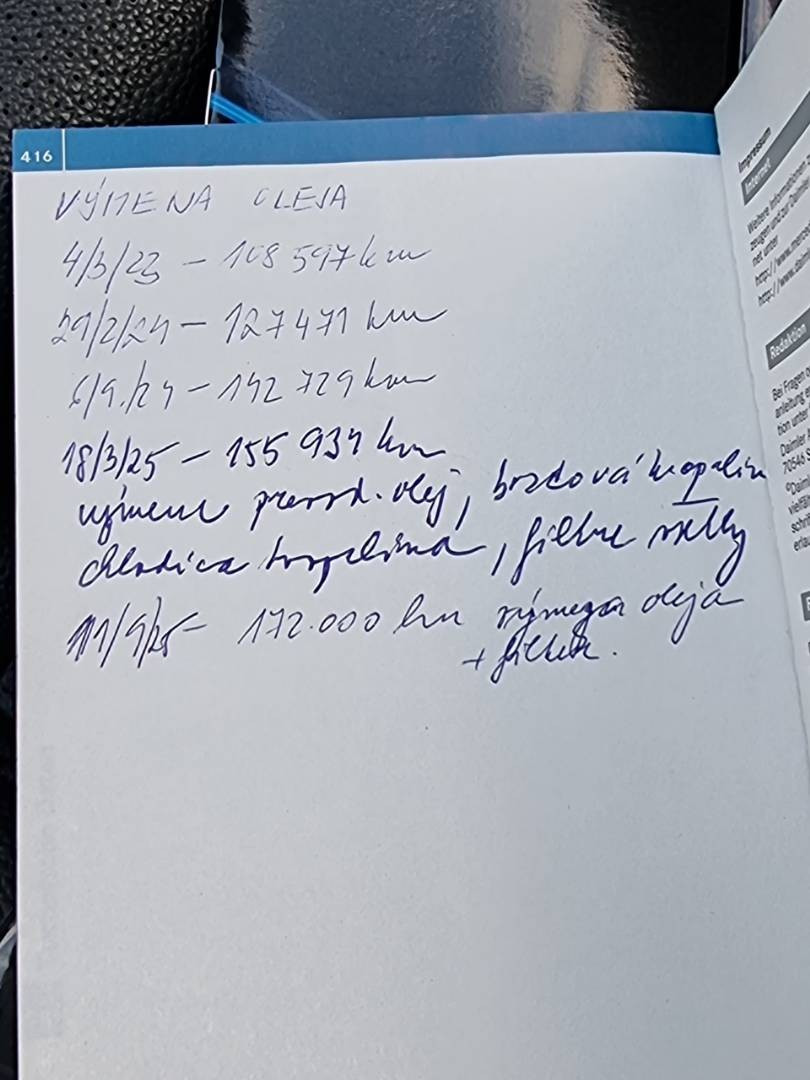 416
VÝMENA OLEJA
4/3/23 – 108 597 km
29/2/24 – 127 471 km
6/9/24 – 142 729 km
18/3/25 – 155 934 km
výmena prevod. olej, brzdová kvapalina
chladica kvapalina, filtre všetky
11/9/25 – 172.000 km výmena oleja
+ filter.
Impressum
Internet
Weitere Informationen
zeugen und zur Daimler
net unter
http://www.merced
http://www.daiml
Redaktion
Bei Fragen o
anleitung e
tion unter
Daimler
70546 S
©Daiml
vielfält
schrif
erlau